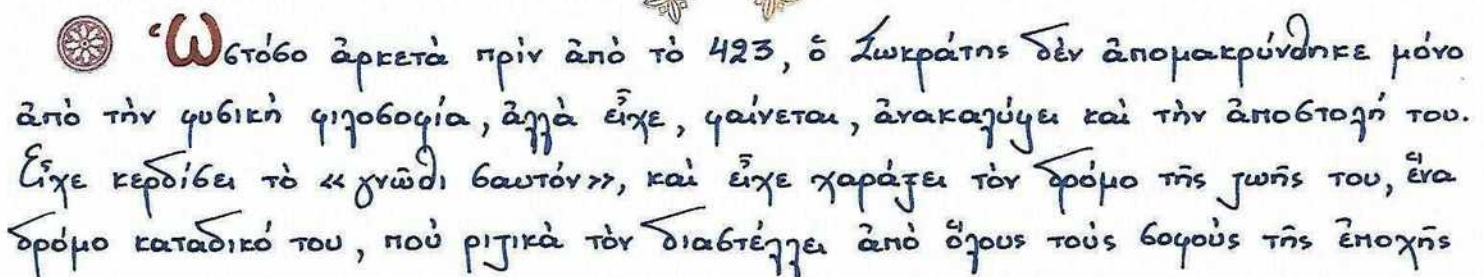 Ὡστόσο ἀρκετὰ πρὶν ἀπὸ τὸ 423, ὁ Σωκράτης δὲν ἀπομακρύνθηκε μόνο
ἀπὸ τὴν φυσικὴ φιλοσοφία, ἀλλὰ εἶχε, φαίνεται, ἀνακαλύψει καὶ τὴν ἀποστολή του.
Εἶχε κερδίσει τὸ «γνῶθι σαυτόν», καὶ εἶχε χαράξει τὸν δρόμο τῆς ζωῆς του, ἕνα
δρόμο καταδικό του, ποὺ ριζικὰ τὸν διαστέλλει ἀπὸ ὅλους τοὺς σοφοὺς τῆς ἐποχῆς